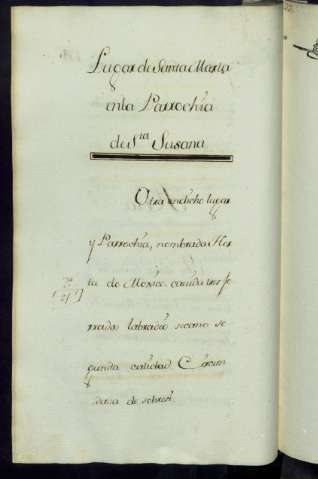 Lugar de Santa Maria
en la Parrochia
de S.ta Susana
Otra en dicho lugar
y Parrochia, nombrada Hor
ta de Mexico, cavida tres fe
rrados labradio secano se
gunda calidad Circun
dada de sobre si